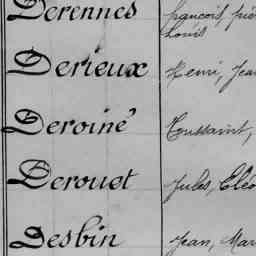 Derennes François,
Louis
Derieux Henri, Jean
Deroiné Toussaint,
Derouet Jules,
Desbin Jean,